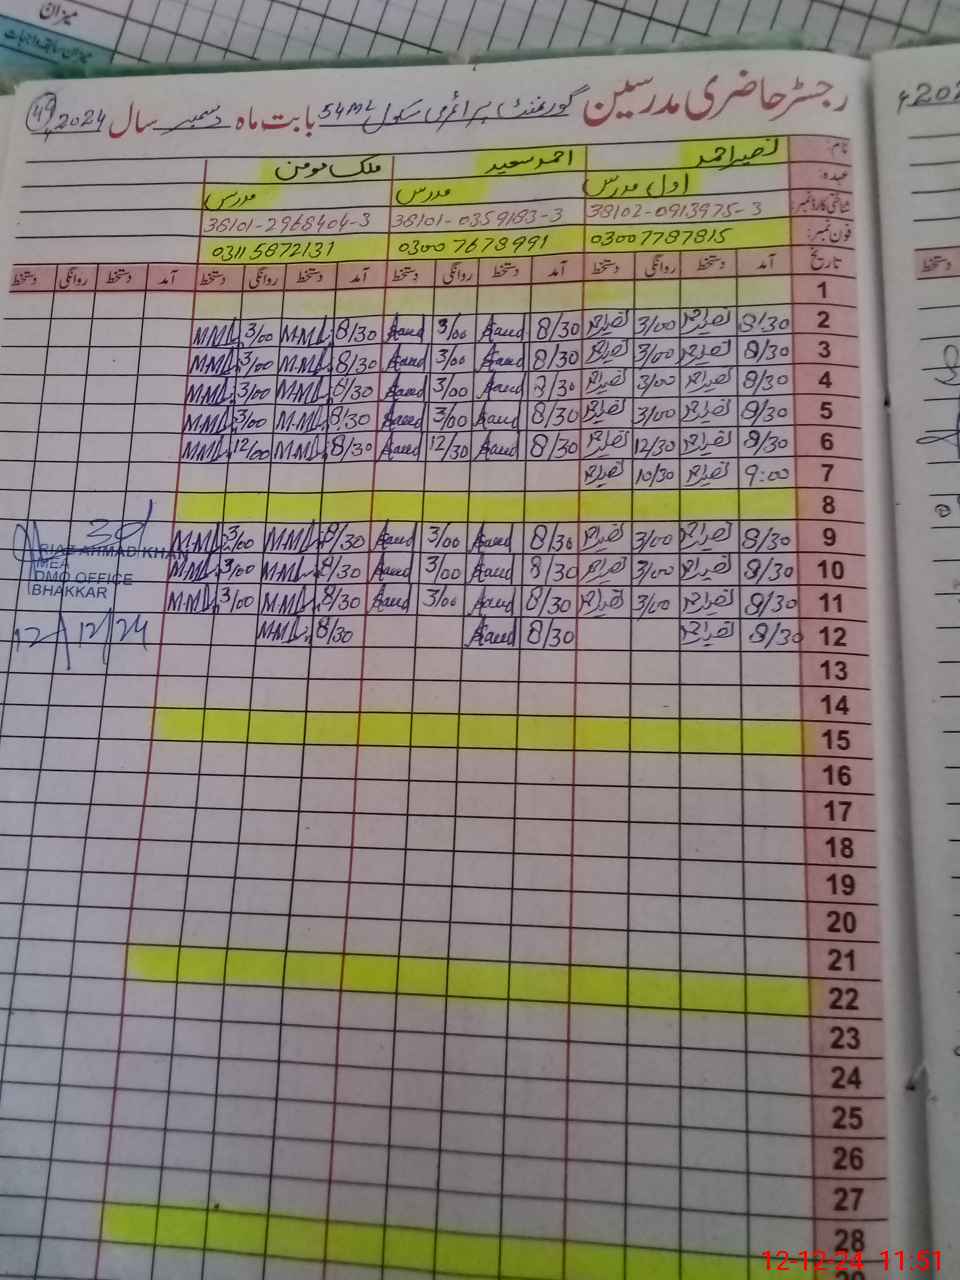 میزان
رجسٹر حاضری مدرسین گورنمنٹ پرائمری سکول 54ML بابت ماہ دسمبر سال 2024ء 49
نام: نصیر احمد احمد سعید ملک مومن
عہدہ: اول مدرس مدرس مدرس
شناختی کارڈ نمبر: 38102-0913975-3 38101-0359183-3 38101-2968404-3
فون نمبر: 03007787815 03007678991 03115872131
تاریخ آمد دستخط روانگی دستخط آمد دستخط روانگی دستخط آمد دستخط روانگی دستخط آمد دستخط روانگی دستخط
1
2 8:30 نصیر احمد 3/00 نصیر احمد 8/30 Saeed 3/00 Saeed 8/30 M.M 3/00 M.M
3 8/30 نصیر احمد 3/00 نصیر احمد 8/30 Saeed 3/00 Saeed 8/30 M.M 3/00 M.M
4 8/30 نصیر احمد 3/00 نصیر احمد 8/30 Saeed 3/00 Saeed 8/30 M.M 3/00 M.M
5 8/30 نصیر احمد 3/00 نصیر احمد 8/30 Saeed 3/00 Saeed 8/30 M.M 3/00 M.M
6 8/30 نصیر احمد 12/30 نصیر احمد 8/30 Saeed 12/30 Saeed 8/30 M.M 12/00 M.M
7 9:00 نصیر احمد 10/30 نصیر احمد
8
9 8/30 نصیر احمد 3/00 نصیر احمد 8/30 Saeed 3/00 Saeed 8/30 M.M 3/00 M.M
10 8/30 نصیر احمد 3/00 نصیر احمد 8/30 Saeed 3/00 Saeed 8/30 M.M 3/00 M.M
11 8/30 نصیر احمد 3/00 نصیر احمد 8/30 Saeed 3/00 Saeed 8/30 M.M 3/00 M.M
12 8/30 نصیر احمد 8/30 Saeed 8/30 M.M
RIAZ AHMAD KHAN
MEA
DMO OFFICE
BHAKKAR
12/12/24
13
14
15
16
17
18
19
20
21
22
23
24
25
26
27
28
12-12-24 11:51